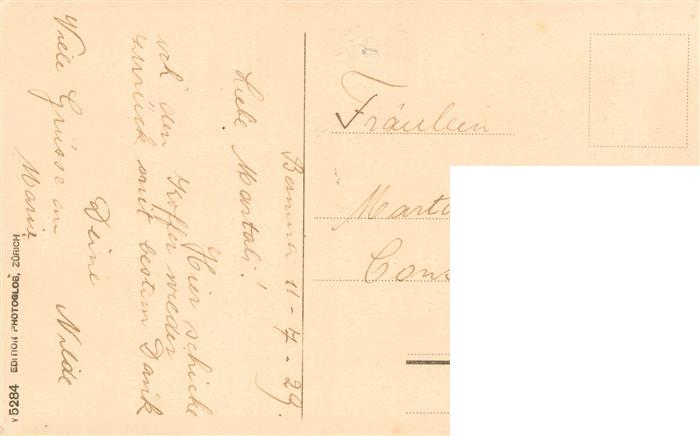 11-7-29.
Liebe Martali!
Hier schicke
ich den Koffer wieder
zurück mit bestem Dank
Deine Nilde
Viele Grüsse an
Marie
V 5284 EDITION PHOTOGLOB, ZÜRICH
Fräulein
Marta
Cons